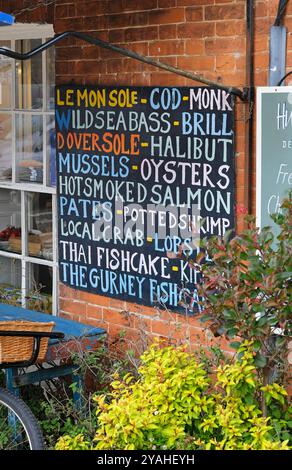 LEMON SOLE - COD - MONK
WILD SEABASS - BRILL
DOVER SOLE - HALIBUT
MUSSELS - OYSTERS
HOT SMOKED SALMON
PATES - POTTED SHRIMP
LOCAL CRAB - LOBS
THAI FISHCAKE - KIP
THE GURNEY FISH
alamy
Image ID: 2H1YEYF
www.alamy.com